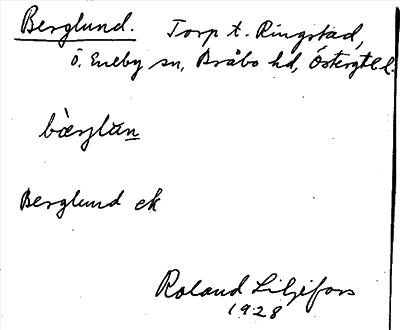 Berglund. Torp t. Ringstad,
Ö. Eneby sn, Bråbo hd, Östergtl l.
bær̀glun
Berglund ek
Roland Liljefors
1928